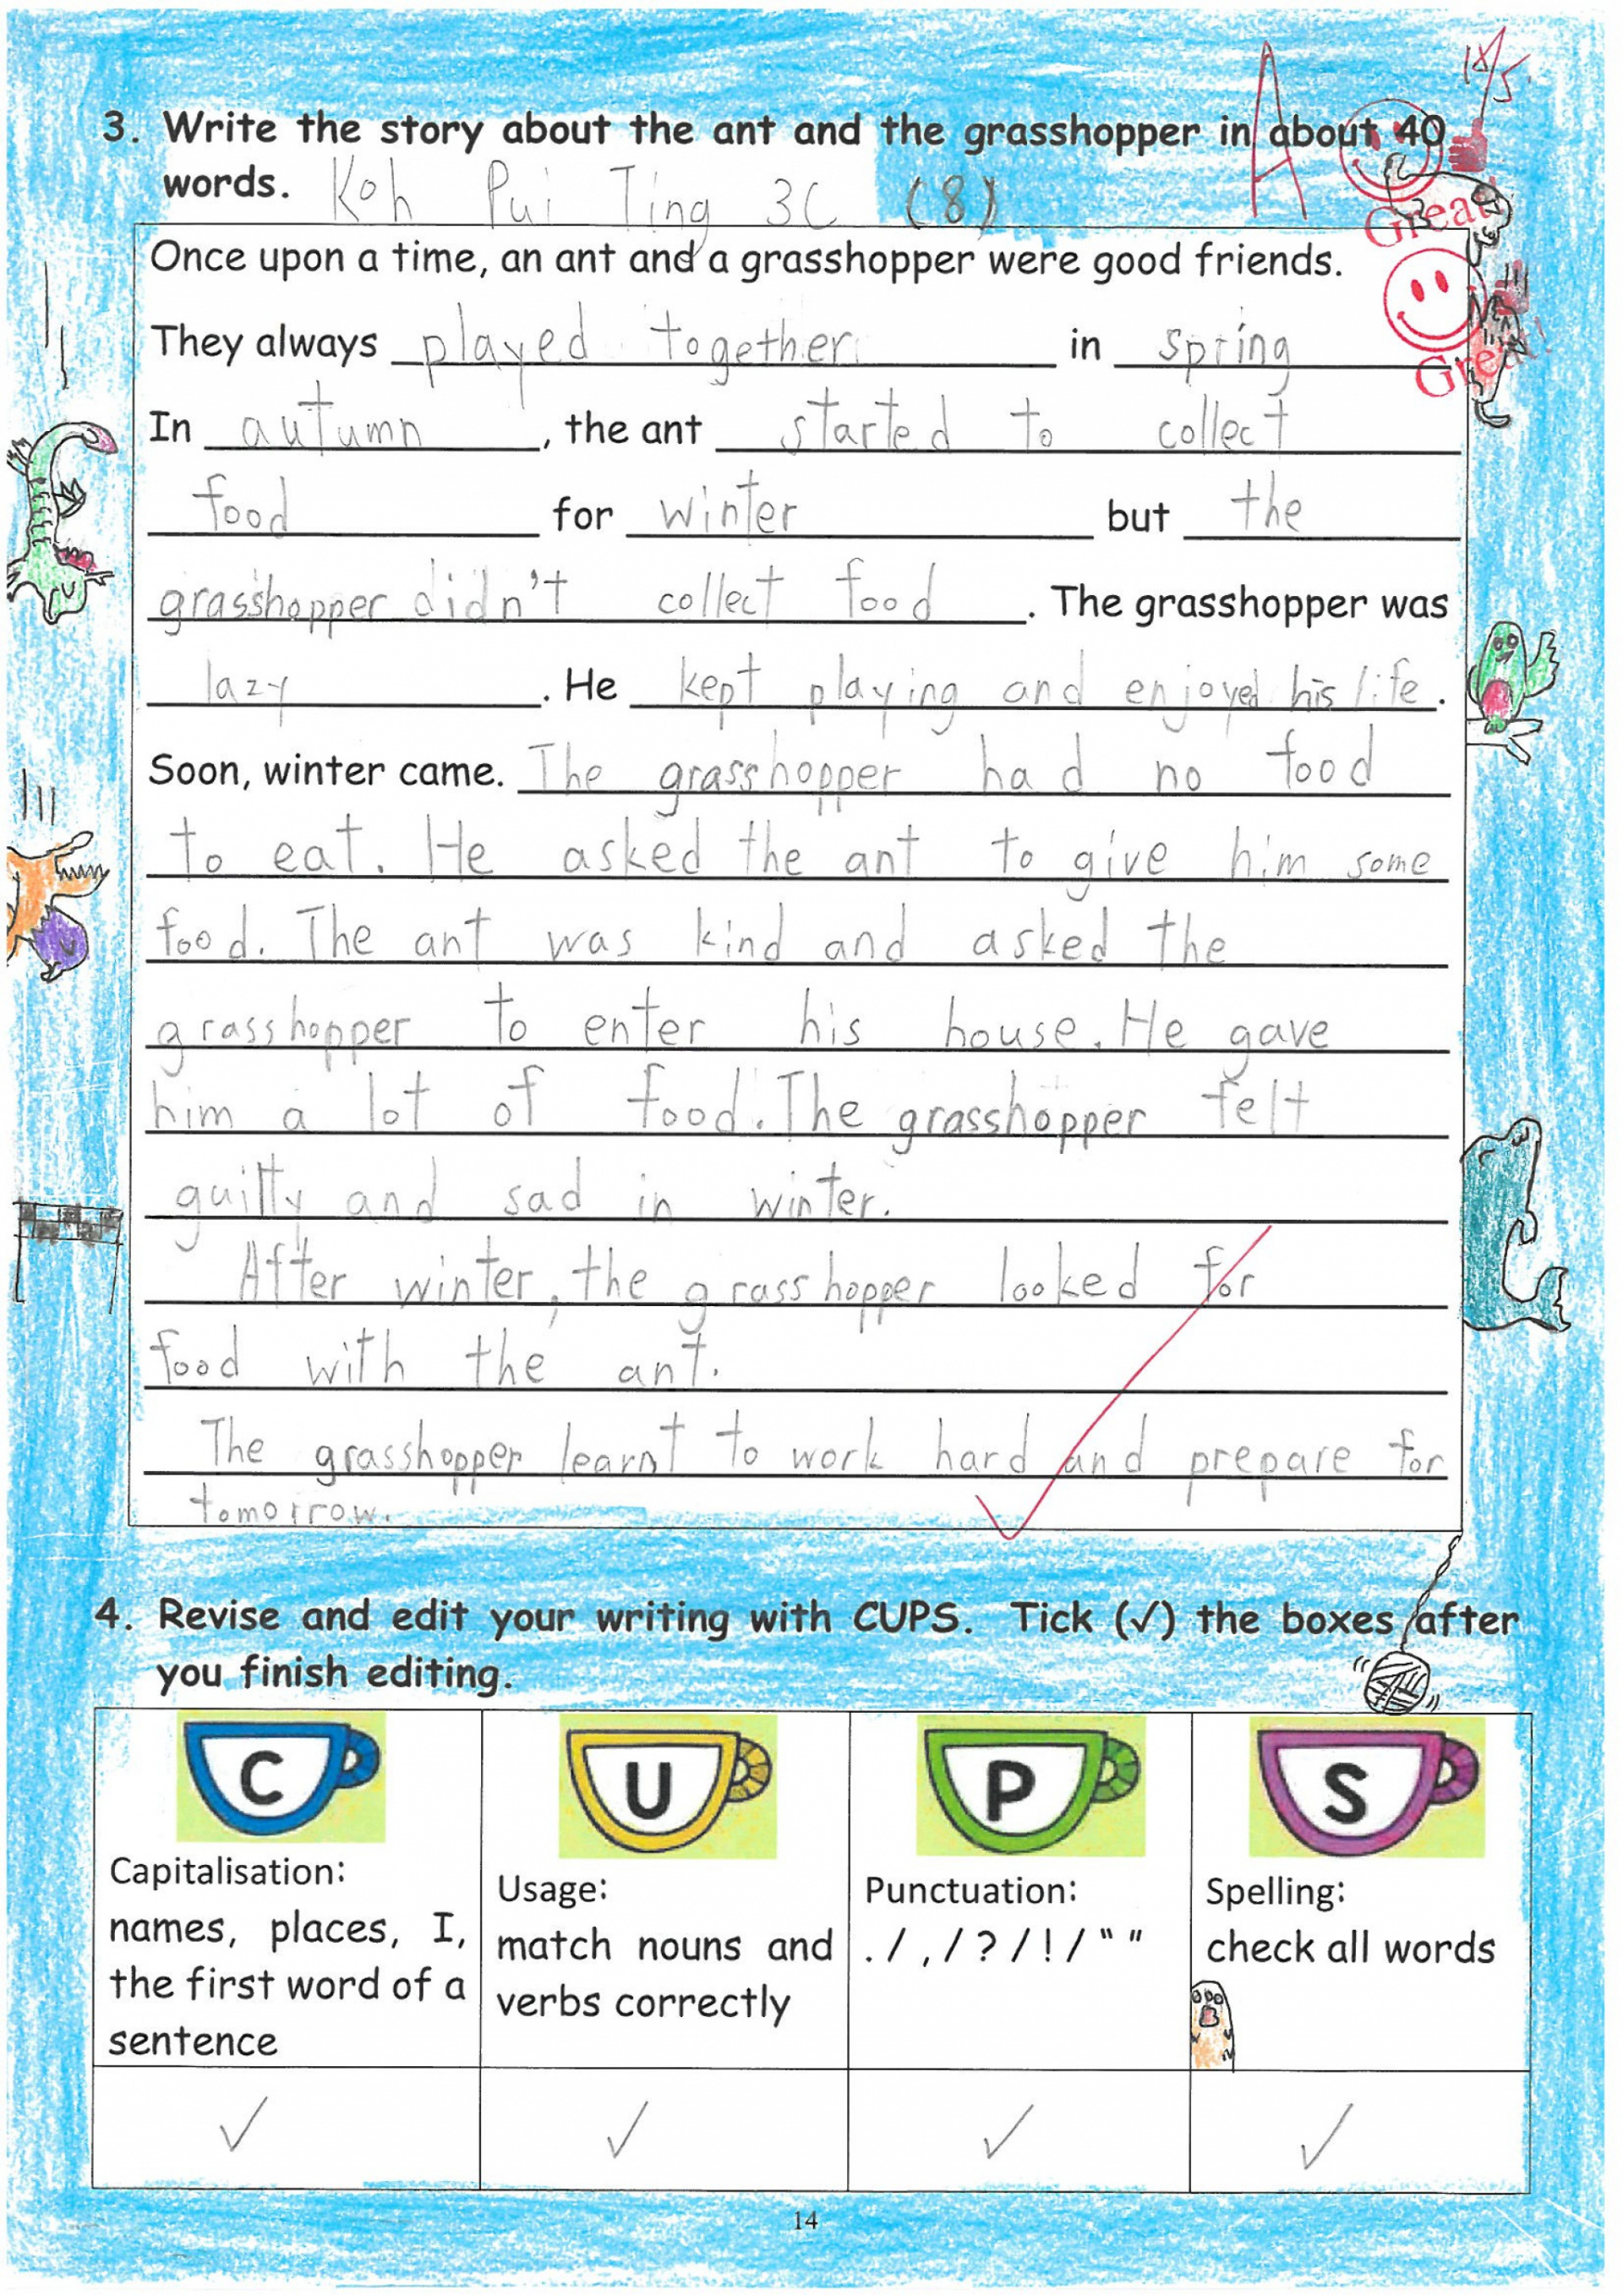 3. Write the story about the ant and the grasshopper in about 40
words. Koh Pui Ting 3C (8)
A
18/5
Great!
Once upon a time, an ant and a grasshopper were good friends.
They always played together in spring
Great!
In autumn, the ant started to collect
food for winter but the
grasshopper didn't collect food. The grasshopper was
lazy. He kept playing and enjoyed his life.
Soon, winter came. The grasshopper had no food
to eat. He asked the ant to give him some
food. The ant was kind and asked the
grasshopper to enter his house. He gave
him a lot of food. The grasshopper felt
guilty and sad in winter.
After winter, the grasshopper looked for
food with the ant.
The grasshopper learnt to work hard and prepare for
tomorrow.
4. Revise and edit your writing with CUPS. Tick (✓) the boxes after
you finish editing.
C
Capitalisation:
names, places, I,
the first word of a
sentence
✓
U
Usage:
match nouns and
verbs correctly
✓
P
Punctuation:
. / , / ? / ! / “ ”
✓
S
Spelling:
check all words
✓
14